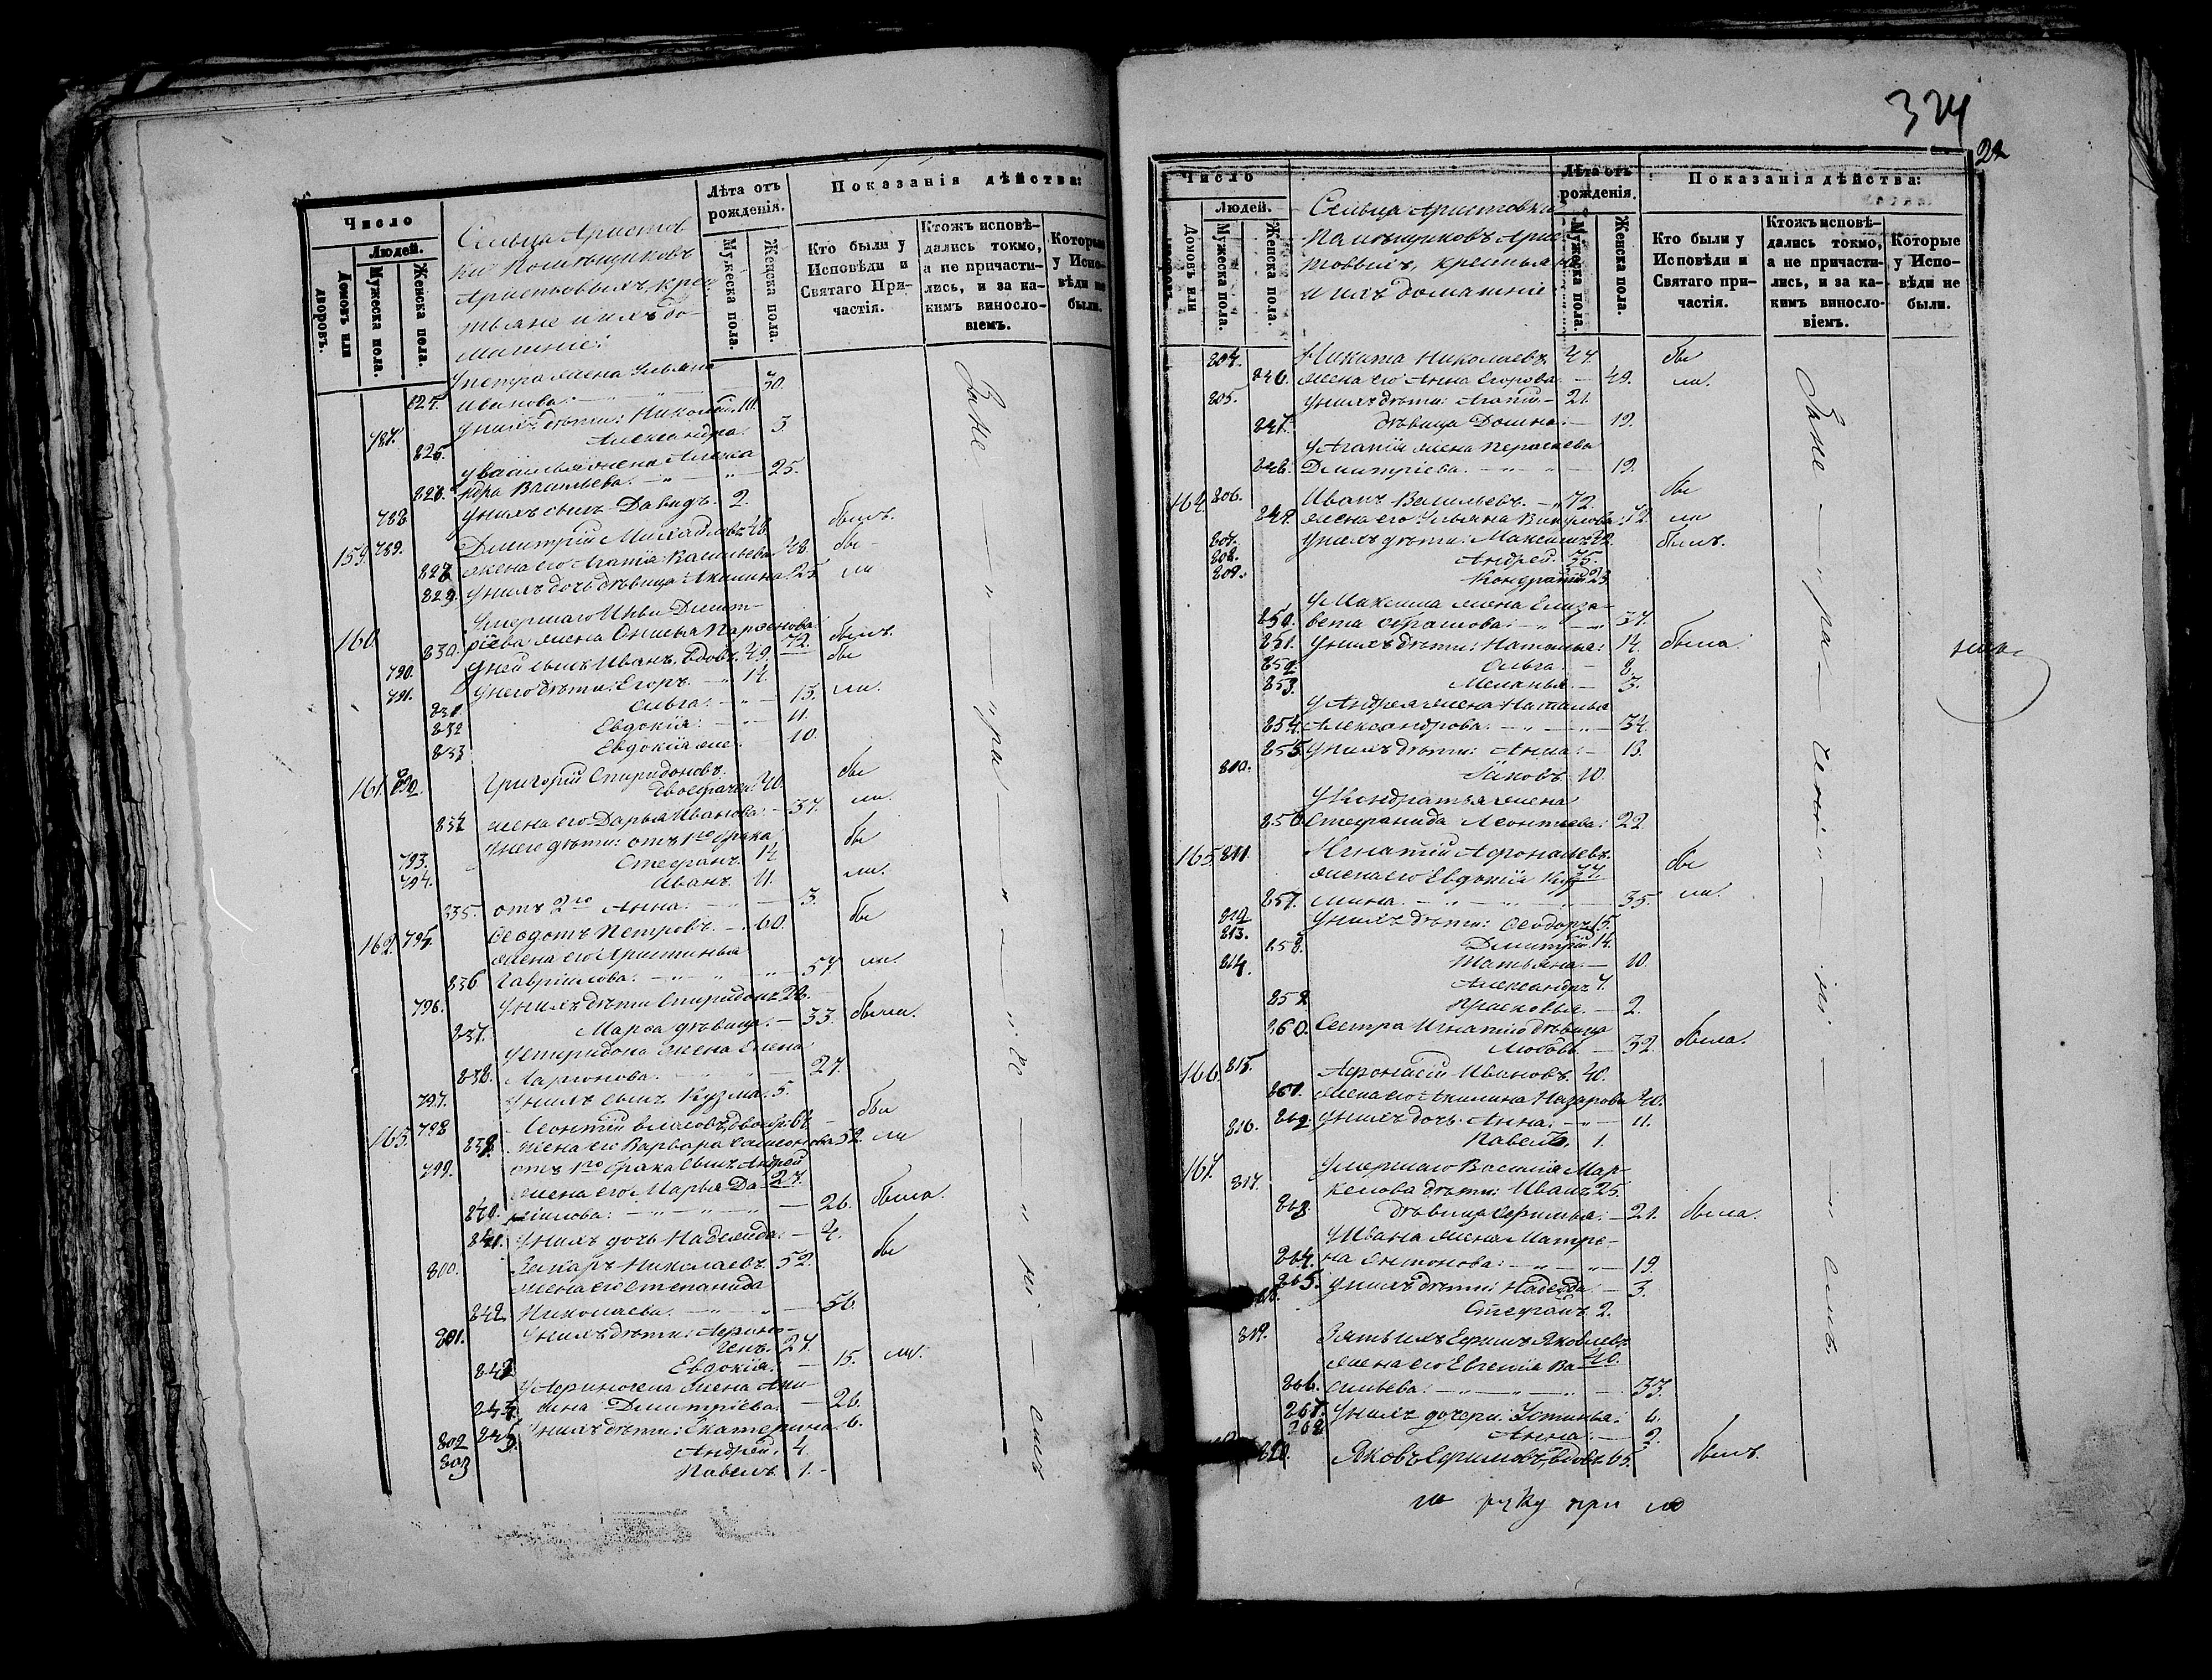 324
22
Число
Людей.
Домовъ или дворовъ.
Мужеска пола.
Женска пола.
Сельца Аристов
ки Помѣщиковъ
Аристовыхъ, крес
тьяне и ихъ до-
машніе:
Лѣта отъ рожденія.
Мужеска пола.
Женска пола.
Показанія дѣйства:
Кто были у Исповѣди и Святаго Причастія.
Ктожъ исповѣдались токмо, а не причастились, и за какимъ винословіемъ.
Которые у Исповѣди не были.
У Петра жена Ульяна
Иванова. 30.
787. У нихъ дѣти: Николай. 10.
825. Александра. 3.
У Василья жена Алекса
826. ндра Васильева. 25.
788 У нихъ сынъ Давидъ. 2.
159. 789. Дмитрій Михайловъ 48. былъ.
жена его Агаѳія Васильева 48. бы-
829. У нихъ дочь дѣвица Акилина. 25. ли
Умершаго Ильи Дмит-
160. 830. ріева жена Парѳенова 72. былъ.
790. У ней сынъ Иванъ, вдовъ. 49. бы
791. У него дѣти: Егоръ. 14.
831 Ольга. 15. ли.
832 Евдокія. 11.
833 Евдокія 10.
161. 792. Григорій Спиридоновъ
двоебрачен. 40. бы
834 жена его Дарья Иванова. 37. ли.
У него дѣти: отъ 1го брака
793. Стефанъ. 14 бы
794. Иванъ. 11. ли.
835. отъ 2го Анна. 3.
162. 795. Ѳеодотъ Петровъ. 60. бы
жена его Христинья
836 Гавріилова. 57 ли.
796. У нихъ дѣти Спиридонъ 28.
837. Марѳа дѣвица. 33. была.
У Спиридона жена Елена
838. Ларіонова. 27.
797. У нихъ сынъ Кузма. 5.
163. 798 Леонтій Власовъ, двоебр. бы
839. жена его Варвара 52. ли
799. отъ 1го брака сынъ Андрей 27.
жена его Марья Да-
840. ніилова. 26. была.
841. У нихъ дочь Надежда. 4.
800. Захаръ Николаевъ. 52. бы
жена его Степанида
842. Николаева. 56.
801. У нихъ дѣти: Аѳино-
генъ. 27.
Евдокія. 15. ли.
У Аѳиногена жена Аки-
лина Дмитріева. 26.
845 У нихъ дѣти: Екатерина 6.
802 Андрей. 4.
803 Павелъ 1.
За не пра че ні емъ
Число
Людей.
Домовъ или дворовъ.
Мужеска пола.
Женска пола.
Сельца Аристовки
Помѣщиковъ Арис
товыхъ, крестьяне
и ихъ домашніе
Лѣта отъ рожденія.
Мужеска пола.
Женска пола.
Показанія дѣйства:
Кто были у Исповѣди и Святаго причастія.
Ктожъ исповѣдались токмо, а не причастились, и за какимъ винословіемъ.
Которые у Исповѣди не были.
804. Никита Николаевъ 47. бы
846. жена его Анна Егорова. 49. ли.
805. У нихъ дѣти: Агапій 21.
847. дѣвица Домна. 19.
У Агапія жена Пераскева
848. Дмитріева. 19.
164. 806. Иванъ Васильевъ. 72. бы
849. жена его Ульяна Викулова. 72 ли
807. У нихъ дѣти: Максимъ 42. былъ.
808. Андрей. 35.
809. Кондратій 23
У Максима жена Елиза-
850. вета 37.
851. У нихъ дѣти: Наталья: 14. была.
852. Ольга. 8.
853. Меланья. 3.
У Андрея жена Наталья
854. Александрова. 34.
855. У нихъ дѣти: Анна. 13.
810. Іаковъ 10.
У Кондратья жена
856 Степанида Леонтьева: 22
165. 811. Игнатій Аѳонасьевъ 37. бы
жена его Евдокія Куз
857. мина. 35. ли.
812 У нихъ дѣти: Ѳеодоръ 15.
813. Дмитрій 14.
858. Татьяна. 10.
814. Александръ 7.
859 Прасковья. 2.
860. Сестра Игнатія дѣвица
Любовь 32. была.
166. 815. Аѳонасій Ивановъ. 40.
861. жена его Акилина Назарова 40.
862. У нихъ дочь Анна. 11.
816. Павелъ. 1.
167. Умершаго Василія Мар-
817. келова дѣти: Иванъ 25.
863. дѣвица 21. была.
У Ивана жена Матре-
864. на Антонова: 19.
865. У нихъ дѣти: Надежда 3.
818. Стефанъ. 2.
819. Зять ихъ Ефимъ Яковлевъ 40.
жена его Евгенія Ва
866. сильева. 33.
867. У нихъ дочери: Устинья. 6.
868 Анна. 2.
820. Яковъ Ефимовъ, вдовъ 65. былъ.
За не пра че ні емъ
руку при